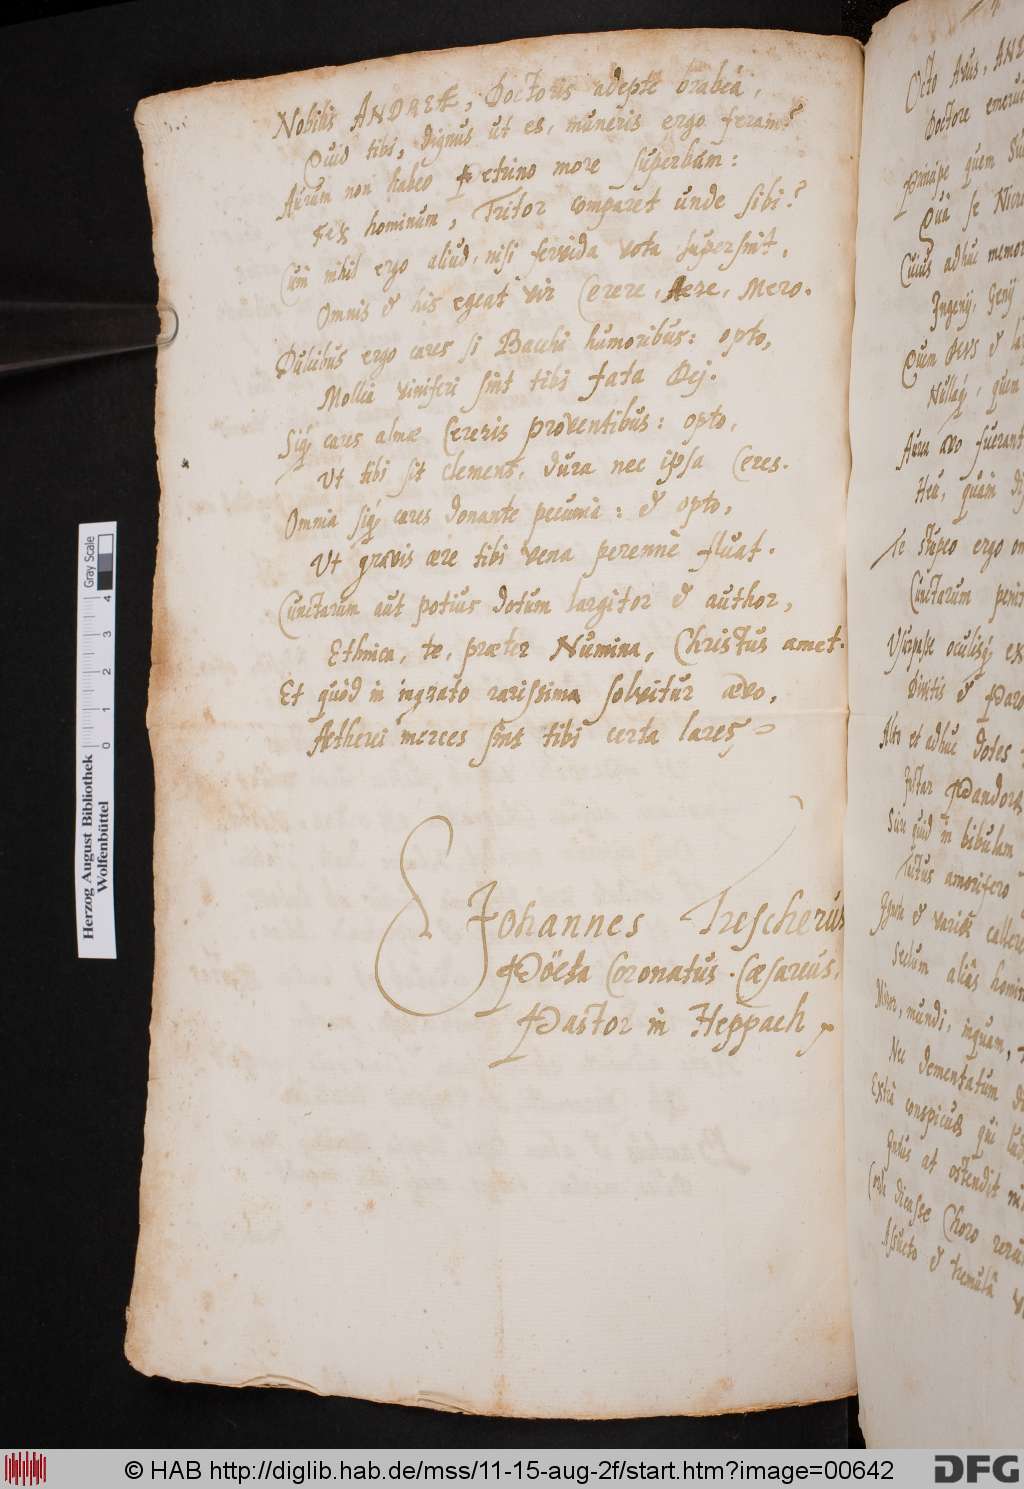 Nobilis ANDREÆ, Doctoris adepte brabéa,
Quid tibi, dignus ut es, muneris ergo feram?
Aurum non habeo Petrino more superbum:
Fex hominum, Tritor comparet unde sibi?
Cùm nihil ergo aliud, nisi fervida vota supersint,
Omnis & his egeat vir Cerere, Aere, Mero.
Dulcibus ergo cares si Bacchi humoribus: opto,
Mollia viniferi sint tibi fata Dej.
Siq; cares almæ Cereris proventibus: opto,
Ut tibi sit clemens, dura nec ipsa Ceres.
Omnia siq; cares donante pecunia: & opto,
Ut gravis ære tibi vena perenne fluat.
Cunctarum aut potius dotum largitor & author,
Ethnica, te, præter Numina, Christus amet.
Et quòd in ingrato rarissima solvitur ævo,
Ætherei merces sint tibi certa lares
Johannes Trescherus
Pöeta Coronatus Cæsareus,
Pastor in Heppach
Octo Avus,
Doctore
Principe quem
Quà se
Cuius adhuc
Ingenij, Genij
Quem DEVS &
Nullaq;, quem
Aurea ævo fuerant
Heu, quàm
Te stupeo ergo
Cunctarum
Usurpasse oculisq;
Divitis &
Alta et adhuc dotes
Instar Pandoræ
Sive quid in bibulam
Tutus amorifero
& varios
Seclum aliàs
mundi, inquam,
Nec dementatum
Extrà conspicuus qui
Intus at ostendit
dicasse Choro
Assueto & tremulâ
Herzog August Bibliothek
Wolfenbüttel
0 1 2 3 4
Gray Scale
© HAB http://diglib.hab.de/mss/11-15-aug-2f/start.htm?image=00642
DFG